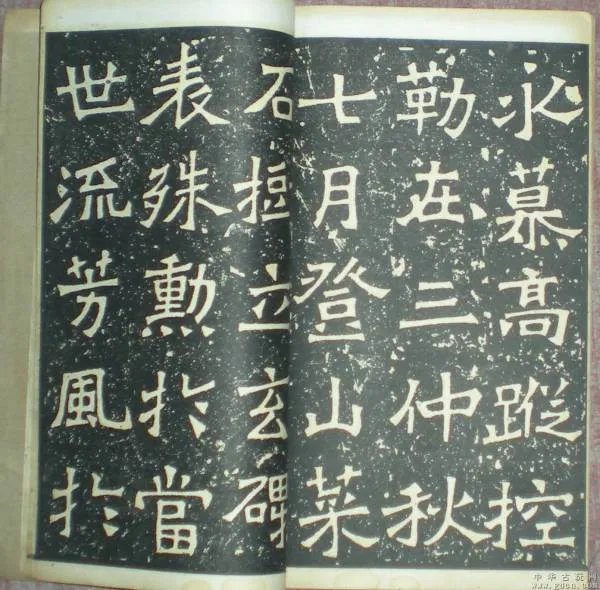 永慕高蹤控
勒在三仲秋
七月登山菜
石𣗳立玄碑
表殊勳於當
世流芳風於
中华古玩网
www.gucn.com